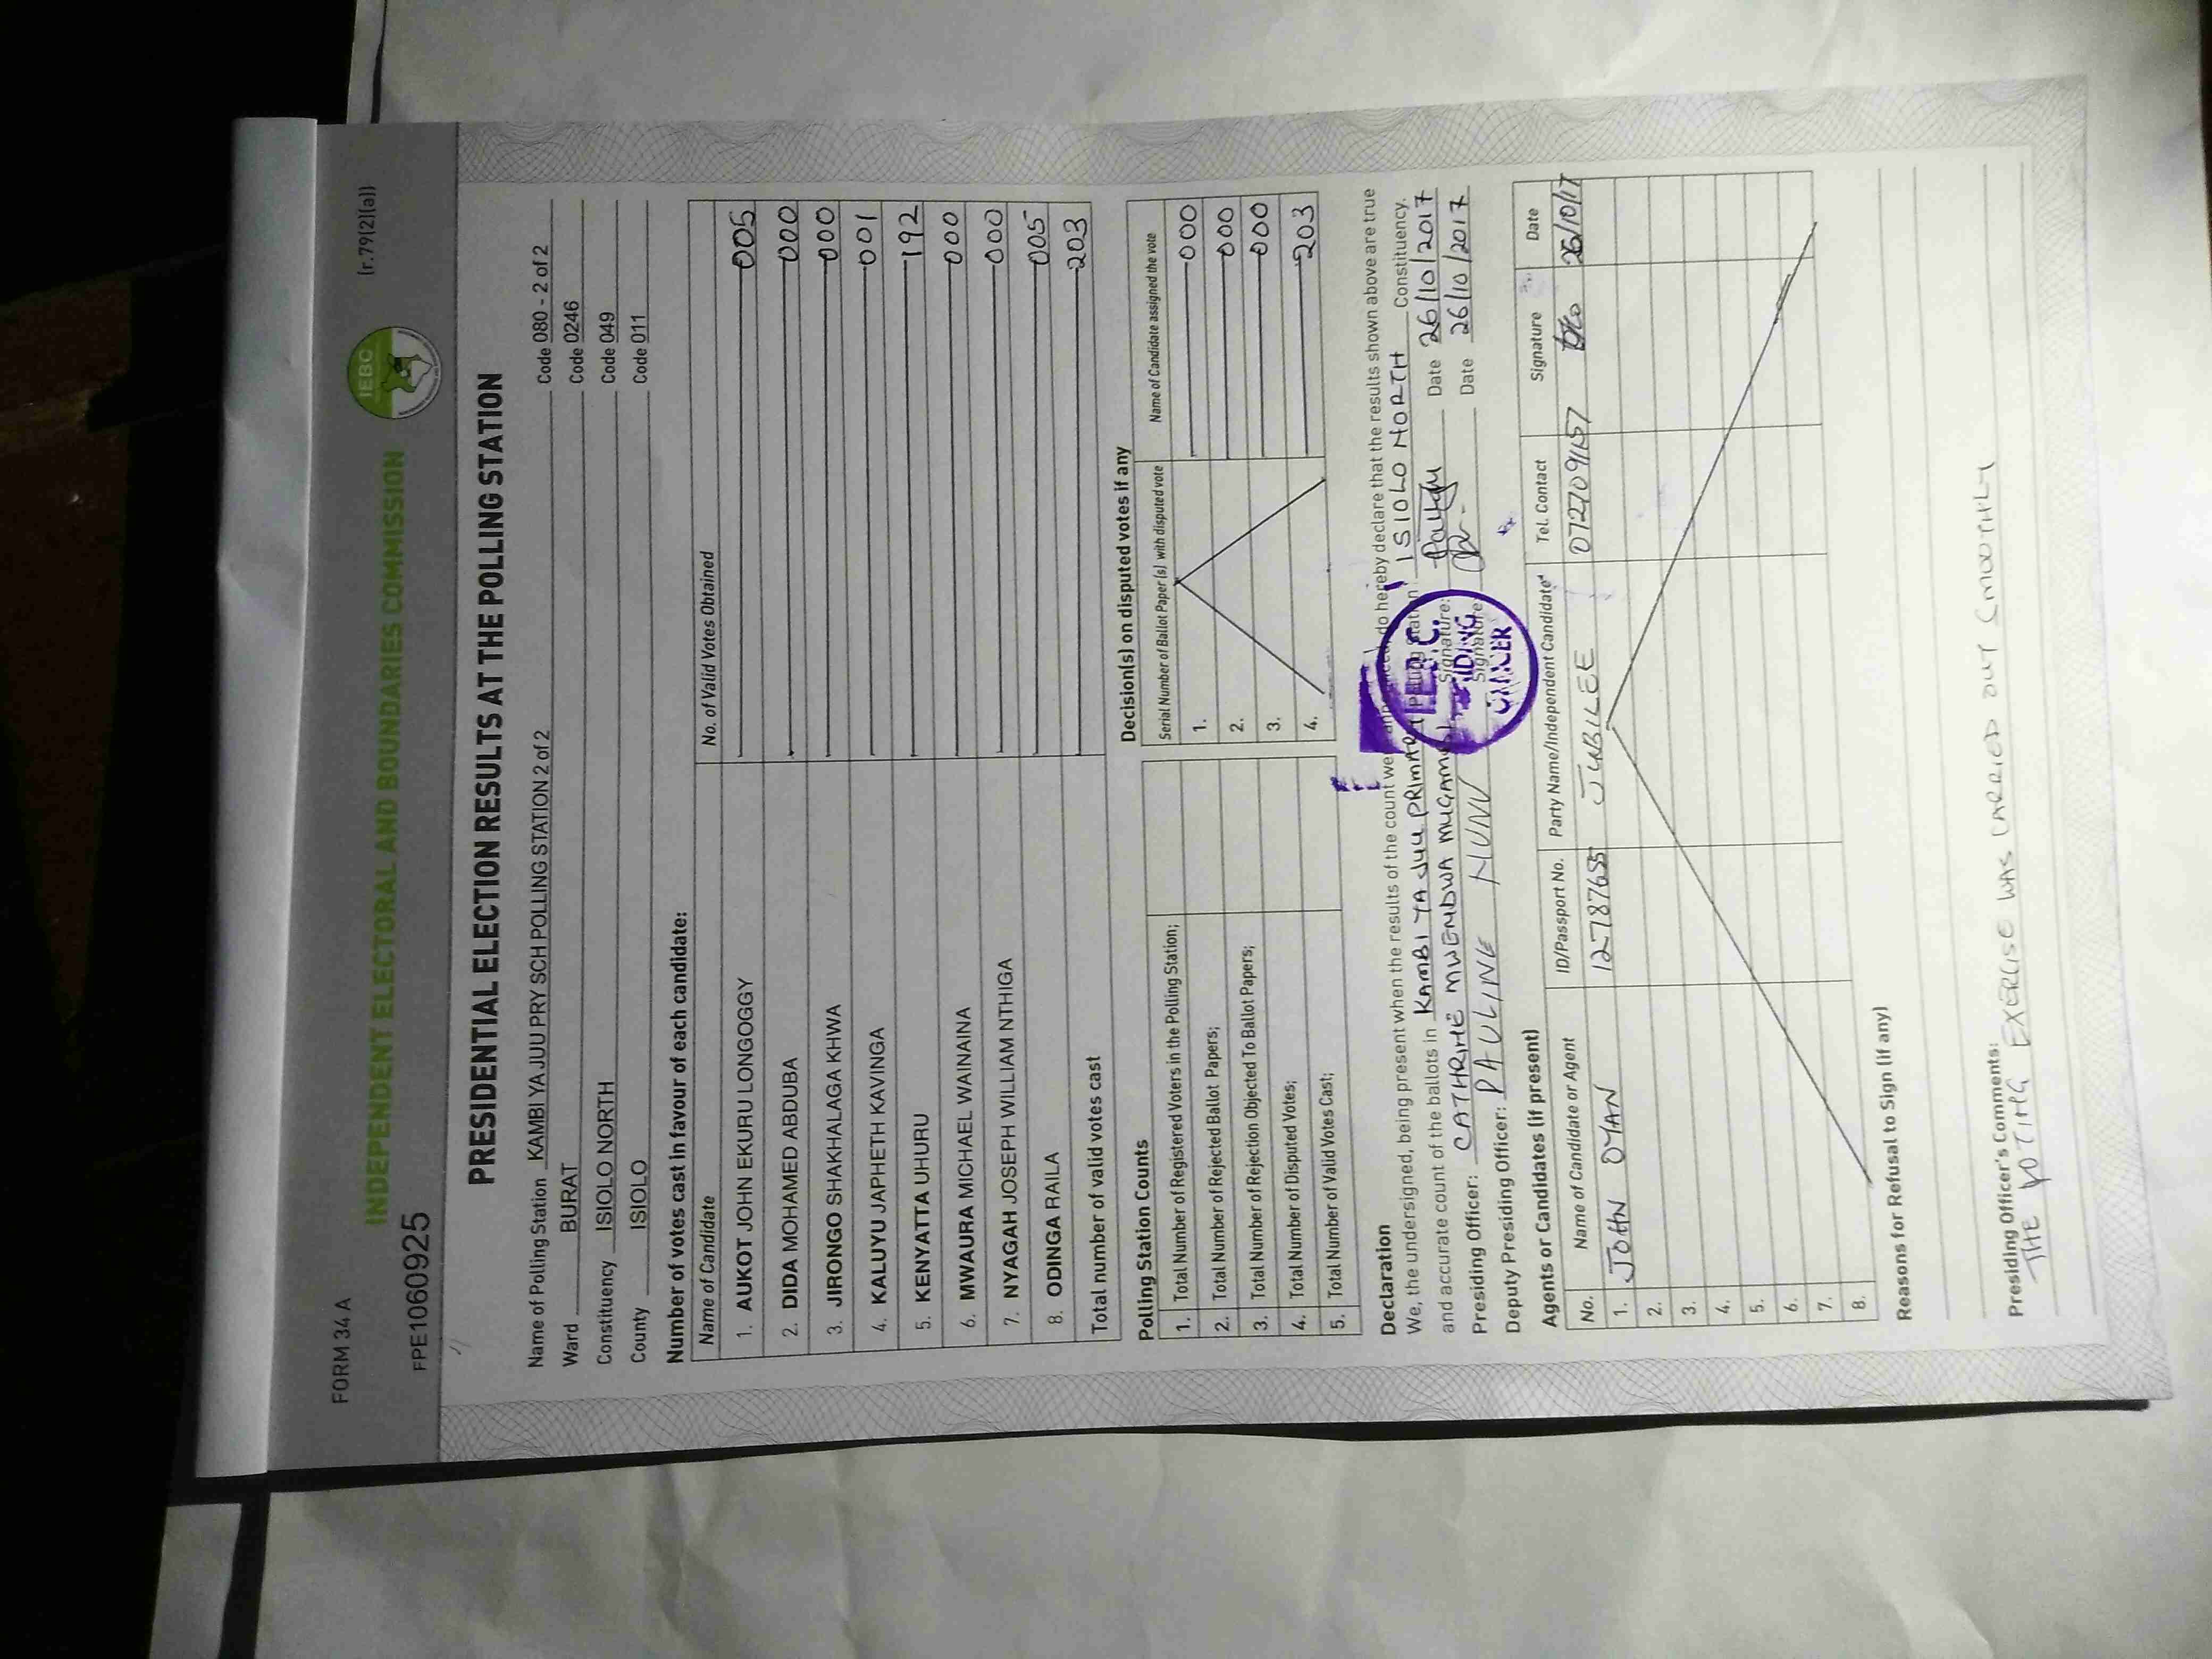 FORM 34 A
(r.79(2)(a))
INDEPENDENT ELECTORAL AND BOUNDARIES COMMISSION
IEBC
FPE1060925
PRESIDENTIAL ELECTION RESULTS AT THE POLLING STATION
Name of Polling Station KAMBI YA JUU PRY SCH POLLING STATION 2 of 2 Code 080 - 2 of 2
Ward BURAT Code 0246
Constituency ISIOLO NORTH Code 049
County ISIOLO Code 011
Number of votes cast in favour of each candidate:
Name of Candidate No. of Valid Votes Obtained
1. AUKOT JOHN EKURU LONGOGGY 005
2. DIDA MOHAMED ABDUBA 000
3. JIRONGO SHAKHALAGA KHWA 000
4. KALUYU JAPHETH KAVINGA 001
5. KENYATTA UHURU 192
6. MWAURA MICHAEL WAINAINA 000
7. NYAGAH JOSEPH WILLIAM NTHIGA 000
8. ODINGA RAILA 005
Total number of valid votes cast 203
Polling Station Counts
1. Total Number of Registered Voters in the Polling Station;
2. Total Number of Rejected Ballot Papers;
3. Total Number of Rejection Objected To Ballot Papers;
4. Total Number of Disputed Votes;
5. Total Number of Valid Votes Cast;
Decision(s) on disputed votes if any
Serial Number of Ballot Paper(s) with disputed vote Name of Candidate assigned the vote
1. 000
2. 000
3. 000
4. 203
Declaration
We, the undersigned, being present when the results of the count were do hereby declare that the results shown above are true
and accurate count of the ballots in KAMBI YA JUU PRIMARY Polling Station ISIOLO NORTH Constituency.
Presiding Officer: CATHRINE MWENDWA MUGAMBI Signature: Date 26/10/2017
Deputy Presiding Officer: PAULINE NUNU Signature: Date 26/10/2017
I.E.B.C.
OFFICER
Agents or Candidates (if present)
No. Name of Candidate or Agent ID/Passport No. Party Name/Independent Candidate Tel. Contact Signature Date
1. JOHN OYAN 12787655 JUBILEE 0727091157 26/10/17
2.
3.
4.
5.
6.
7.
8.
Reasons for Refusal to Sign (if any)
Presiding Officer's Comments:
THE VOTING EXERCISE WAS CARRIED OUT SMOOTHLY